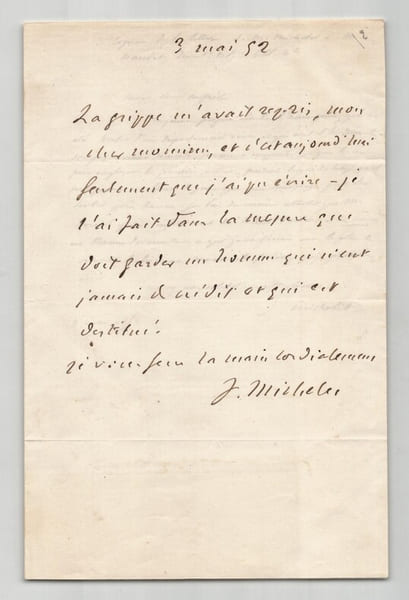 3 mai 52
La grippe m'avait repris, mon
cher monsieur, et c'est aujourd'hui
seulement que j'ai pu écrire – je
l'ai fait dans la mesure que
doit garder un homme qui n'eut
jamais de crédit et qui est
destitué.
je vous serre la main cordialement
J. Michelet